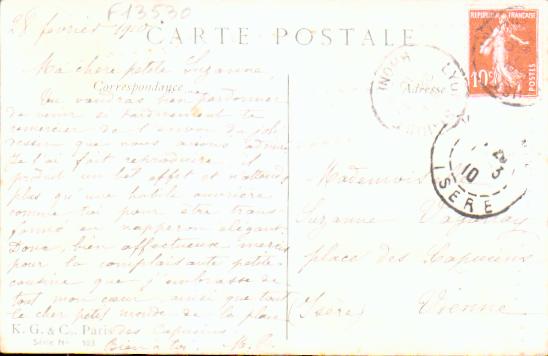 F13530
28 février 1910
CARTE POSTALE
Ma chère petite Suzanne
Correspondance
Tu voudras bien pardonner
de venir si tardivement te
remercier de l'envoi du joli
dessin que nous avons admiré
Je l'ai fait reproduire il
produit un bel effet et n'attends
plus qu'une habile ouvrière
comme toi pour être trans
formé en napperon élégant.
Donc, bien affectueux mercis
pour la complaisante petite
cousine que j'embrasse de
tout mon cœur ainsi que tout
le cher petit monde de la place
des Capucins
Bien à toi
K. G. & C., Paris
Série No 103
Adresse
RÉPUBLIQUE FRANÇAISE
10c
POSTES
LYO
10
ISERE
Mademois
Suzanne
place des Capucins
Vienne
(Isère)